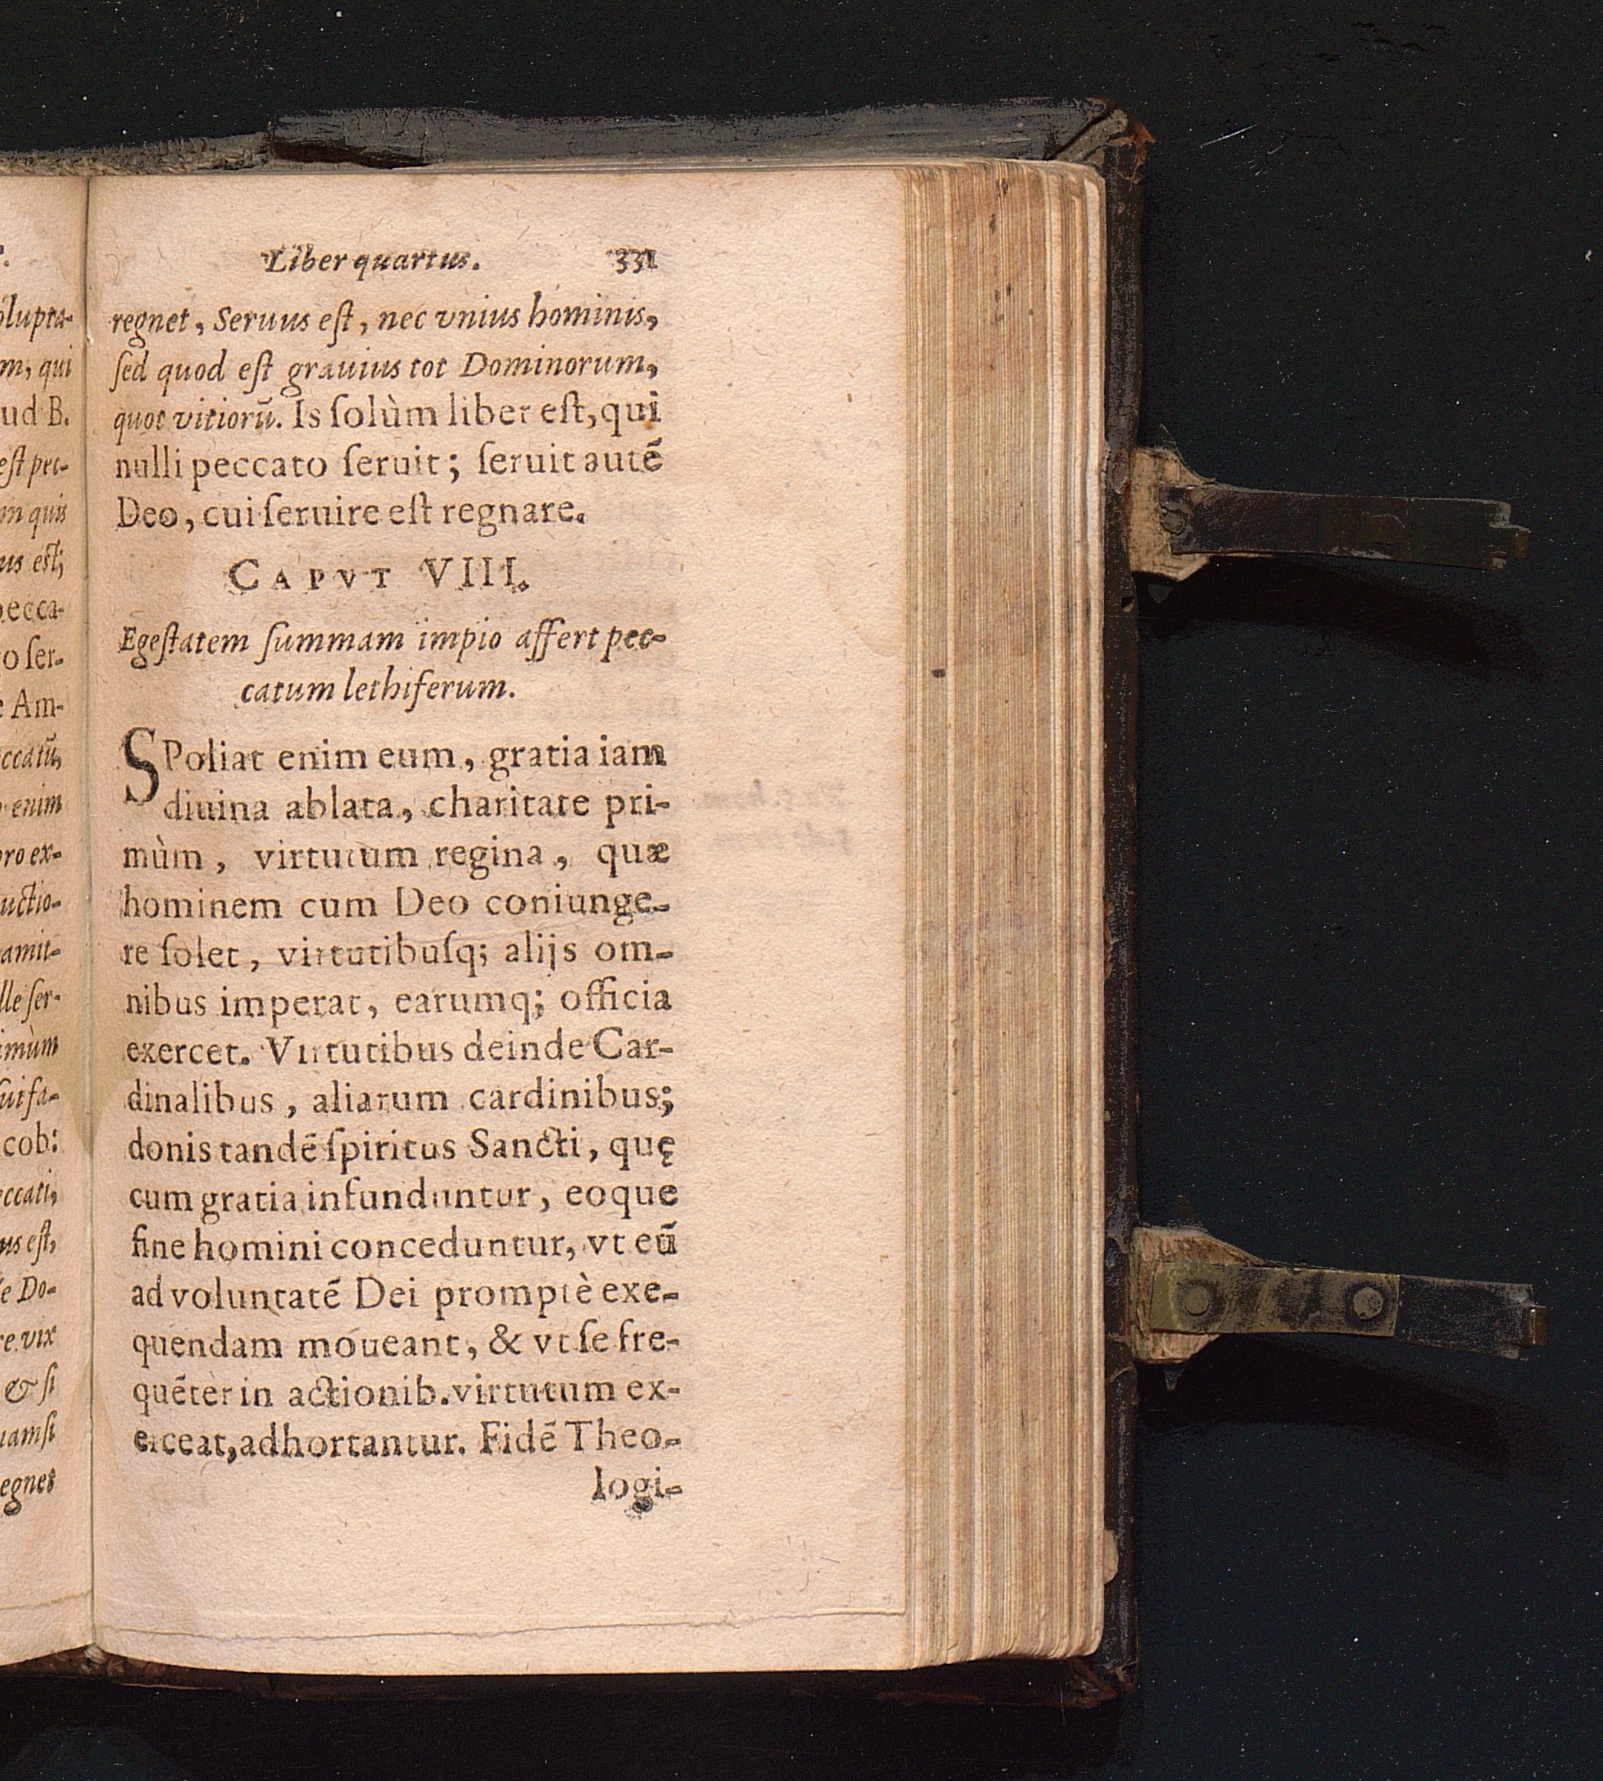 Liber quartus. 331
regnet, Seruus eſt, nec vnius hominis,
ſed quod eſt grauius tot Dominorum,
quot vitiorū. Is ſolùm liber eſt, qui
nulli peccato ſeruit; ſeruit autē
Deo, cui ſeruire eſt regnare.
CAPVT VIII.
Egeſtatem ſummam impio affert pec-
catum lethiferum.
SPoliat enim eum, gratia iam
diuina ablata, charitate pri-
mùm, virtutum regina, quæ
hominem cum Deo coniunge-
re ſolet, virtutibuſq; alijs om-
nibus imperat, earumq; officia
exercet. Virtutibus deinde Car-
dinalibus, aliarum cardinibus;
donis tandē ſpiritus Sancti, quę
cum gratia infunduntur, eoque
fine homini conceduntur, vt eū
ad voluntatē Dei promptè exe-
quendam moueant, & vt ſe fre-
quēter in actionib. virtutum ex-
erceat, adhortantur. Fidē Theo-
logi-